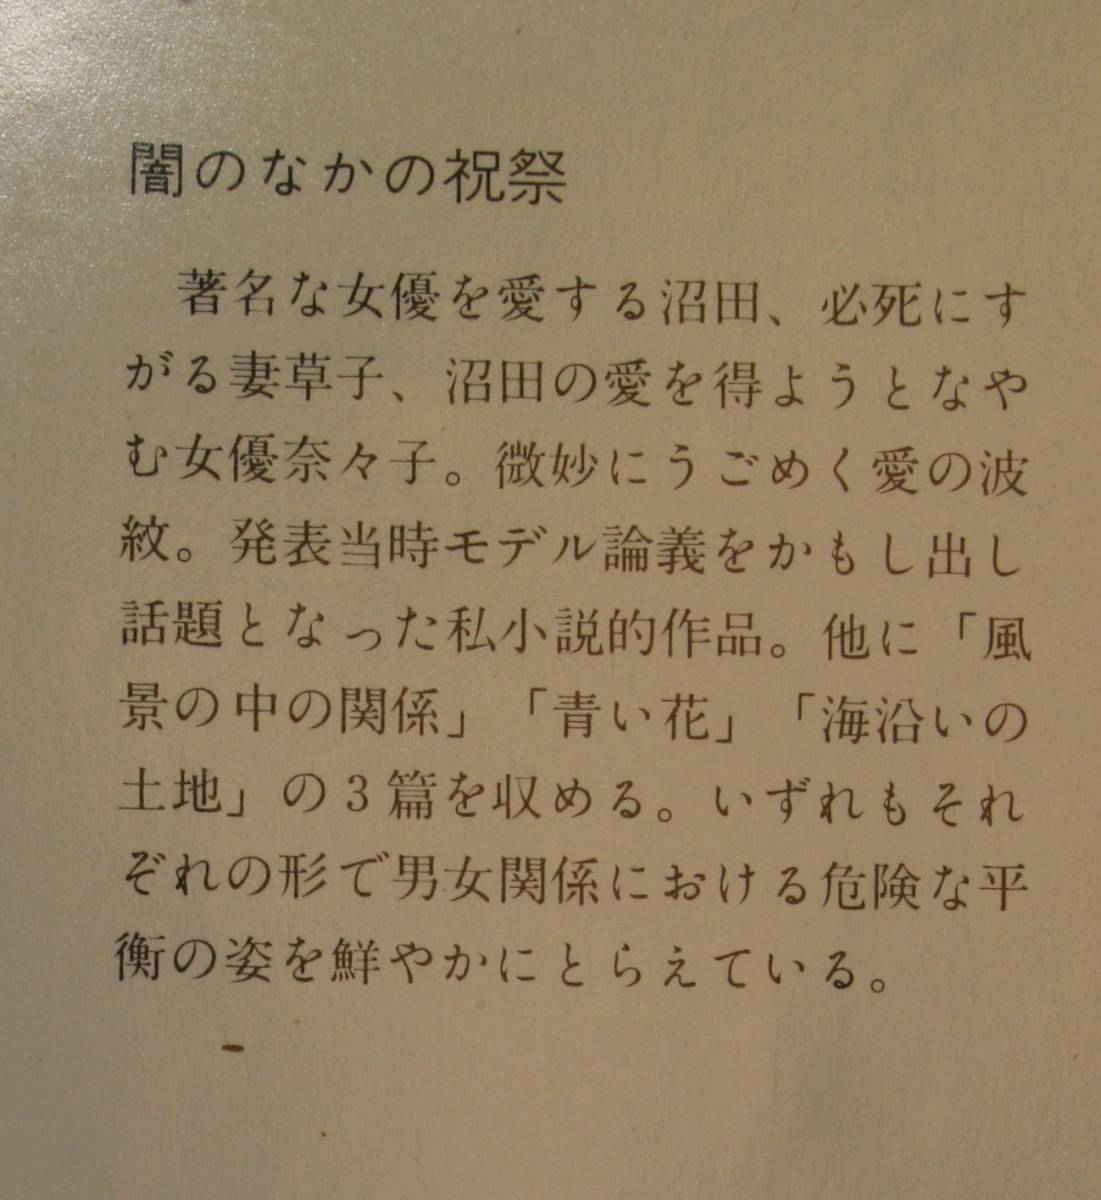 闇のなかの祝祭
著名な女優を愛する沼田、必死にす
がる妻草子、沼田の愛を得ようとなや
む女優奈々子。微妙にうごめく愛の波
紋。発表当時モデル論義をかもし出し
話題となった私小説的作品。他に「風
景の中の関係」「青い花」「海沿いの
土地」の3篇を収める。いずれもそれ
ぞれの形で男女関係における危険な平
衡の姿を鮮やかにとらえている。